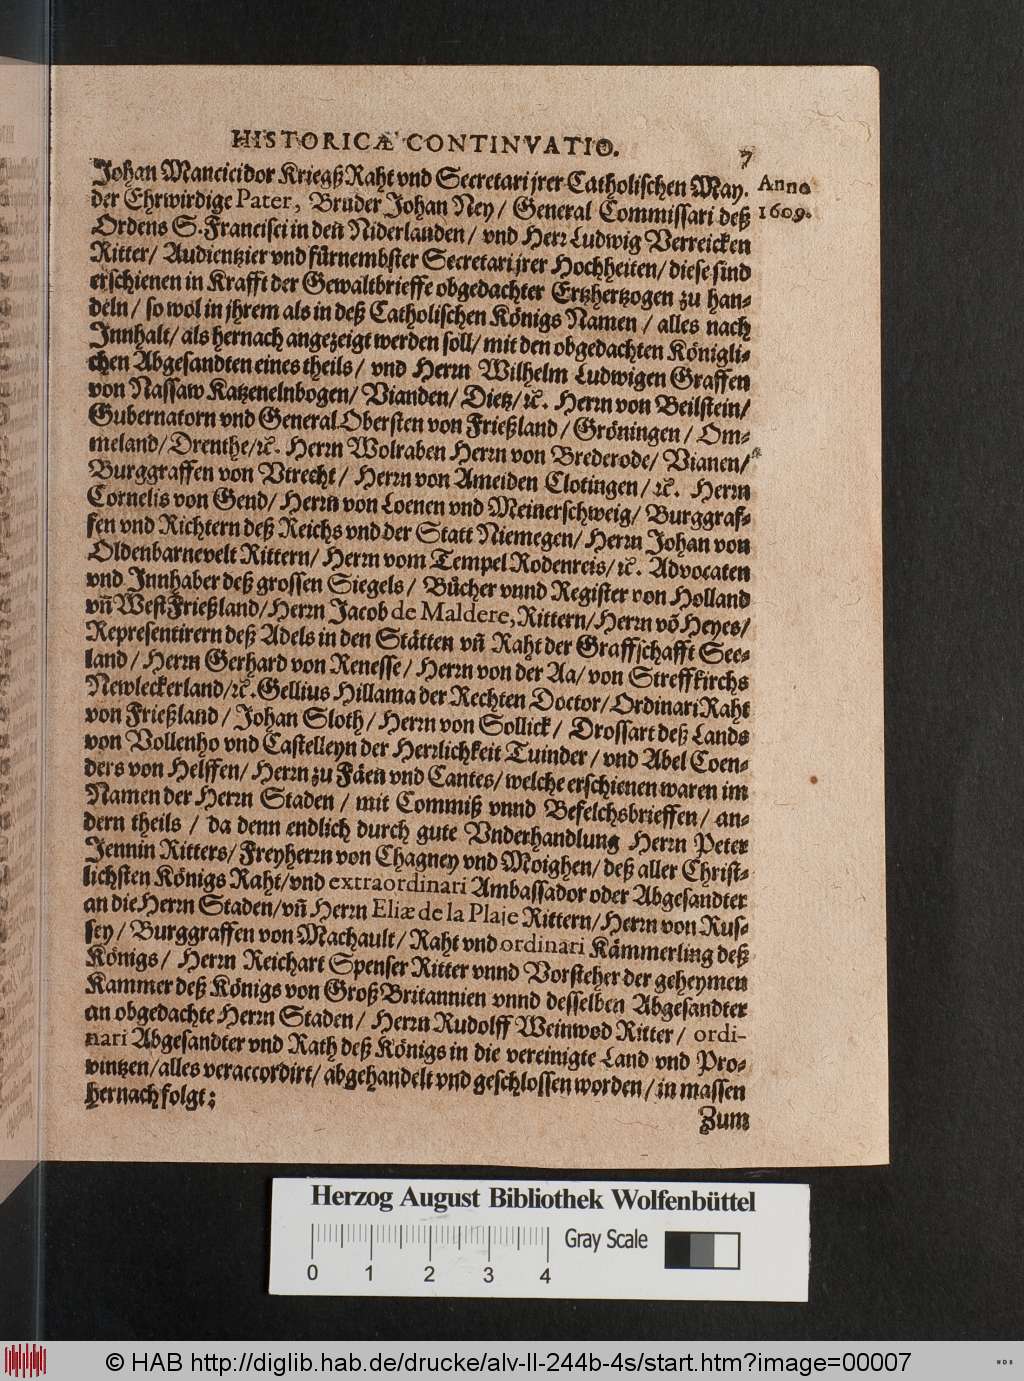 HISTORICÆ CONTINVATIO. 7
Johan Mancicidor KriegßRaht vnd Secretari jrer Catholischen May.
Anno
1609.
der Ehrwirdige Pater, Bruder Johan Ney / General Commissari deß
Ordens S. Francisci in den Niderlanden / vnd Herr Ludwig Verreicken
Ritter / Audientzier vnd fürnembster Secretari jrer Hochheiten / diese sind
erschienen in Krafft der Gewaltbrieffe obgedachter Ertzhertzogen zu han-
deln / so wol in jhrem als in deß Catholischen Königs Namen / alles nach
Innhalt / als hernach angezeigt werden soll / mit den obgedachten Königli-
chen Abgesandten eines theils / vnd Herrn Wilhelm Ludwigen Graffen
von Nassaw Katzenelnbogen / Vianden / Dietz / ꝛc. Herrn von Beilstein /
Gubernatorn vnd General Obersten von Frießland / Gröningen / Om-
meland / Drenthe / ꝛc. Herrn Wolraben Herrn von Brederode / Vianen /
Burggraffen von Vtrecht / Herrn von Ameiden Clotingen / ꝛc. Herrn
Cornelis von Gend / Herrn von Loenen vnd Meinerschweig / Burggraf-
fen vnd Richtern deß Reichs vnd der Statt Niemegen / Herrn Johan von
Oldenbarnevelt Rittern / Herrn vom Tempel Rodenreis / ꝛc. Advocaten
vnd Innhaber deß grossen Siegels / Bücher vnnd Register von Holland
vñ WestFrießland / Herrn Jacob de Maldere, Rittern / Herrn võ Heyes /
Representirern deß Adels in den Stätten vñ Raht der Graffschafft See-
land / Herrn Gerhard von Renesse / Herrn von der Aa / von Streffkirchs
Newleckerland / ꝛc. Gellius Hillama der Rechten Doctor / Ordinari Raht
von Frießland / Johan Sloth / Herrn von Sollick / Drossart deß Lands
von Vollenho vnd Castelleyn der Herrlichkeit Tuinder / vnd Abel Coen-
ders von Helffen / Herrn zu Fäen vnd Cantes / welche erschienen waren im
Namen der Herrn Staden / mit Commiß vnnd Befelchsbrieffen / an-
dern theils / da denn endlich durch gute Vnderhandlung Herrn Peter
Jennin Ritters / Freyherrn von Chagney vnd Moighen / deß aller Christ-
lichsten Königs Raht / vnd extraordinari Ambassador oder Abgesandter
an die Herrn Staden / vñ Herrn Eliæ de la Plaie Rittern / Herrn von Rus-
sey / Burggraffen von Machault / Raht vnd ordinari Kämmerling deß
Königs / Herrn Reichart Spenser Ritter vnnd Vorsteher der geheymen
Kammer deß Königs von Groß Britannien vnnd desselben Abgesandter
an obgedachte Herrn Staden / Herrn Rudolff Weinwod Ritter / ordi-
nari Abgesandter vnd Rath deß Königs in die vereinigte Land vnd Pro-
vintzen / alles veraccordirt / abgehandelt vnd geschlossen worden / in massen
hernach folgt:
Zum
Herzog August Bibliothek Wolfenbüttel
0 1 2 3 4
Gray Scale
© HAB http://diglib.hab.de/drucke/alv-ll-244b-4s/start.htm?image=00007